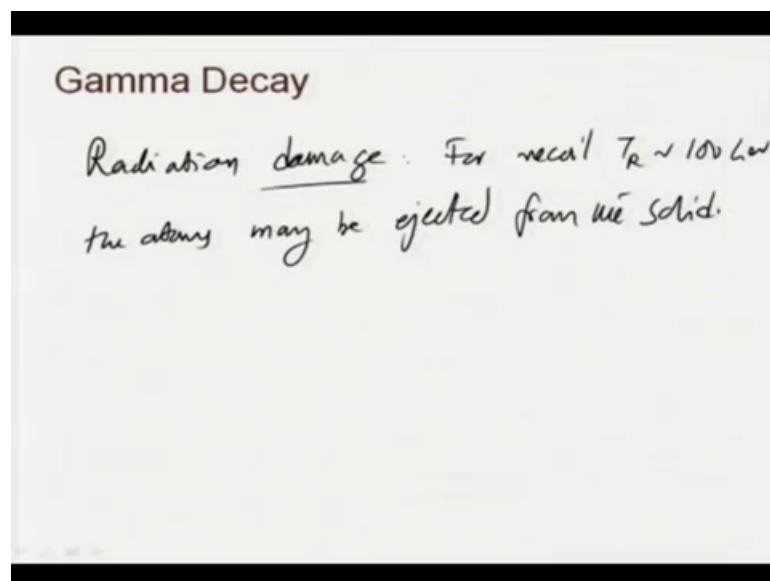 Gamma Decay
Radiation damage : For recoil T_R ~ 100
the atoms may be ejected from the solid.